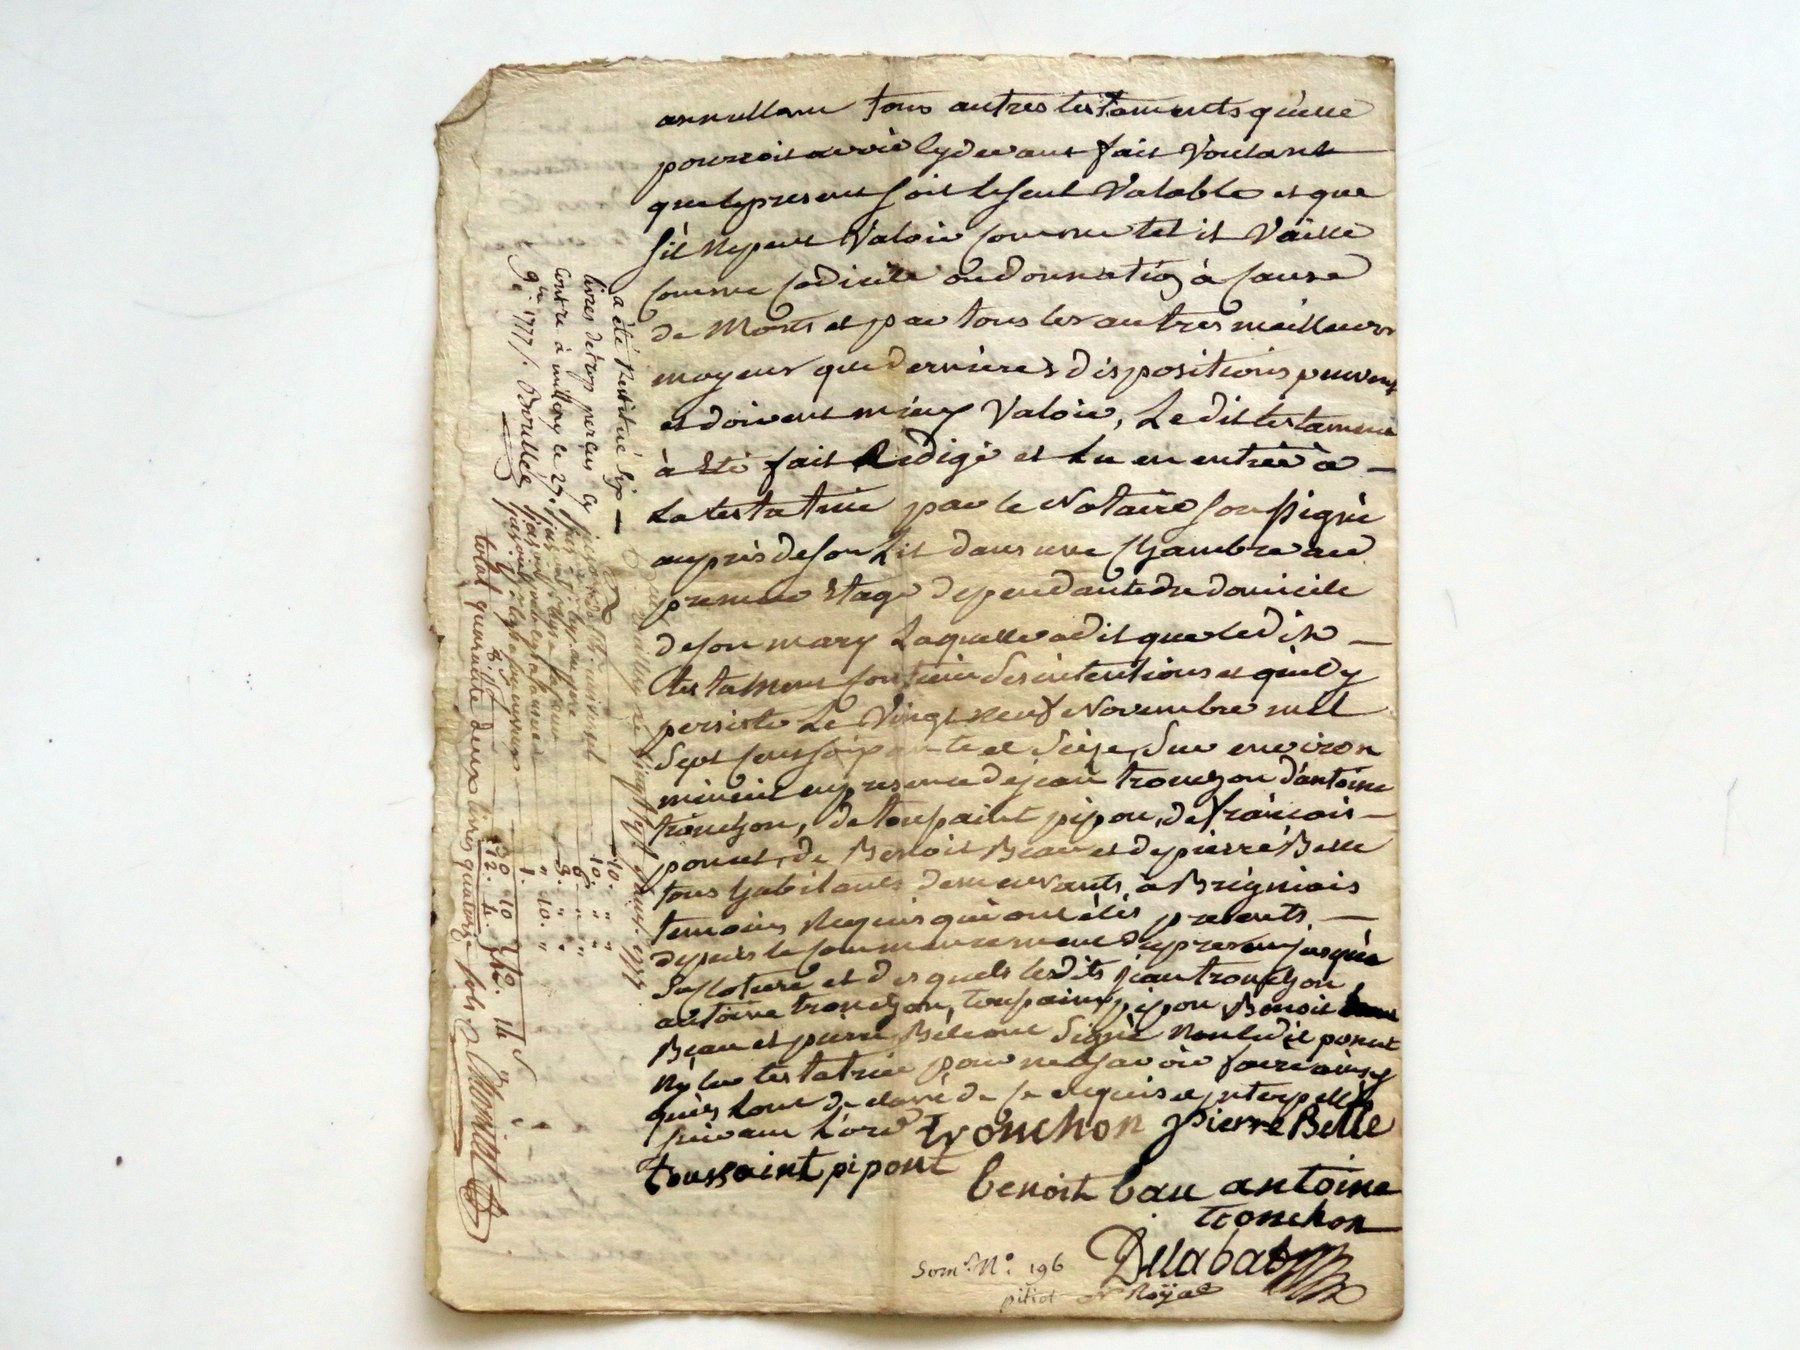 annullant tous autres testaments quelle
pourroit avoir cydevant fait Voulant
que le present soit le seul Valable et que
s'il ne peut Valoir comme tel il Vaille
comme codicile ou donnation à cause
de Mort et par tous les autres meilleurs
moyens que dernieres dispositions peuvent
et doivent mieux Valoir, Le dit testament
à Eté fait Redigé et Lu en entier à
La testatrice par le Notaire soussigné
auprès de son Lit dans une chambre au
premier Etage dependante du domicile
de son mary Laquelle a dit que le dit
testament contient ses intentions et quil y
persiste Le Vingt neuf Novembre mil
Sept cent soixante et Seize, Sur environ
en presence de jean tronchon d'antoine
tronchon, de toussaint pipon, de françois
ponnet, de Benoit Beau et de pierre Belle
tous habitants demeurants à Brigniais
temoins Requis qui ont étés presents
depuis le commencement du present jusques à
Sa cloture et desquels lesdits jean tronchon
antoine tronchon, toussaint pipon Benoit
Beau et pierre Belle ont Signé Non ledit ponnet
Ny la testatrice pour ne sçavoir faire ainsy
quils l'ont declaré de ce Requis et interpellés
suivant L'ord tronchon pierre Belle
toussaint pipont
benoit bau antoine
tronchon
Delabat
Nre Royal
Som. N° 196
pitiot
a été Restitué Six
livres de trop perçus cy
contre à millery le 27.
9bre 1777.
total quarante deux livres quatorze sols